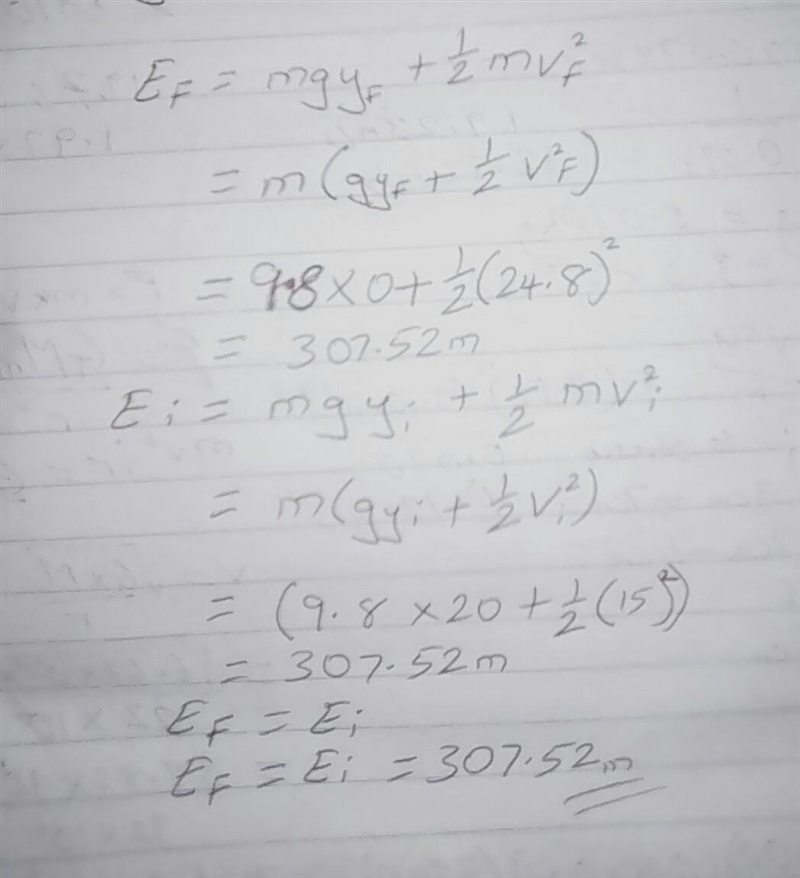 E_F = mgy_F + 1/2 mv_F²
= m(gy_F + 1/2 v²_F)
= 9.8 × 0 + 1/2 (24.8)²
= 307.52m
E_i = mgy_i + 1/2 mv_i²
= m(gy_i + 1/2 v_i²)
= (9.8 × 20 + 1/2 (15)²)
= 307.52m
E_F = E_i
E_F = E_i = 307.52m